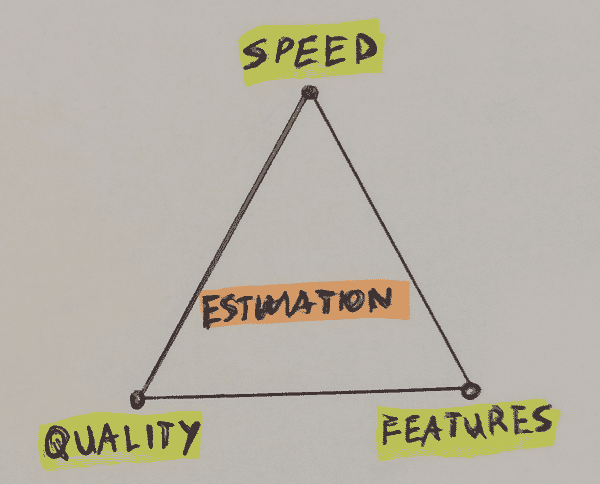 SPEED
ESTIMATION
QUALITY
FEATURES